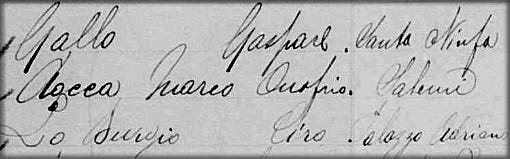 Gallo Gaspare. Santa Ninfa
Ageea Marco Onofrio. Salemi
Lo Surgio Ciro. Palazzo Adriano